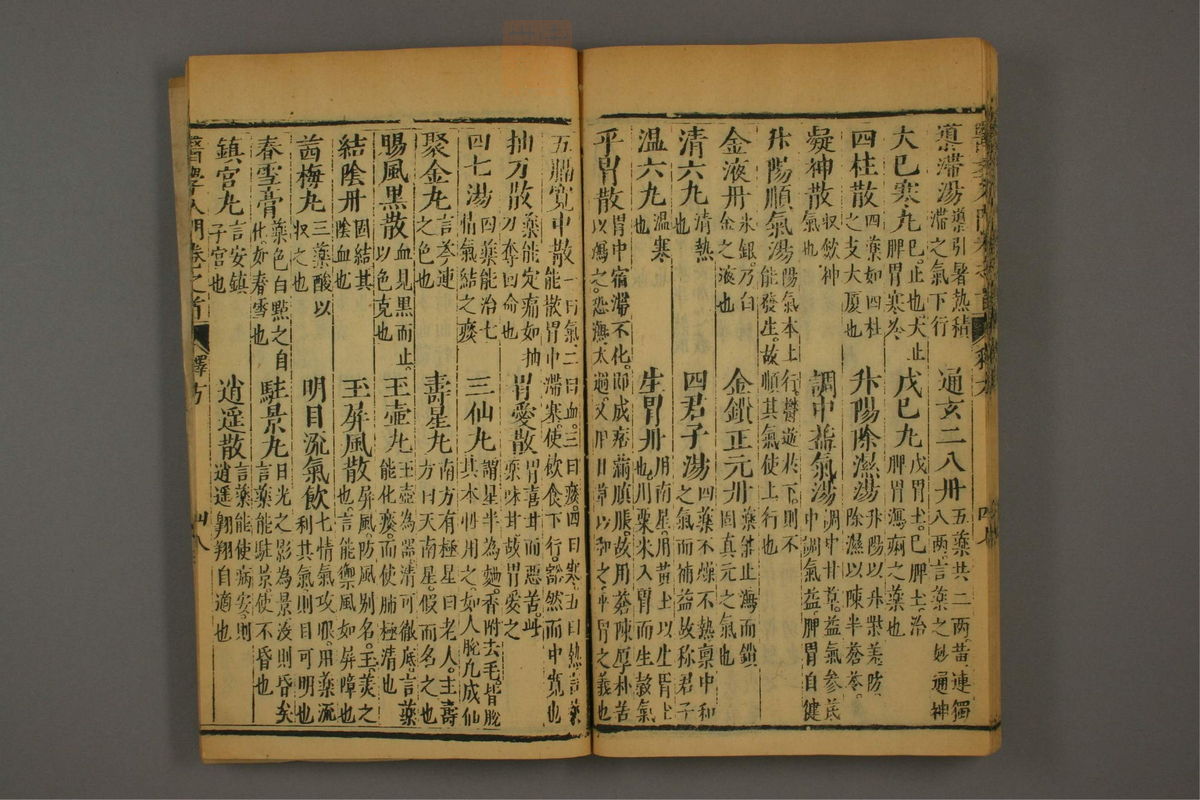 導滯湯 導引暑熱積滯之氣下行 通玄二八丹 五藥共二兩。黃連獨八兩。言藥之妙通神
大已寒丸 已。止也。大止脾胃寒冷 戊巳丸 戊胃土。巳脾土。治脾胃瀉痢之藥也
四柱散 四藥如四柱之支大厦也 升陽除濕湯 升陽以升柴羗防。除濕以陳半蒼苓。
凝神散 收斂神氣也 調中益氣湯 調中甘草。益氣參芪中調氣益。脾胃自健
升陽順氣湯 陽氣本上行。鬱遊於下。則不能發生。故順其氣使上行也
金液丹 水銀乃白金之液也 金鎖正元丹 藥能止瀉而鎖固真元之氣也
清六丸 清熱也 四君子湯 四藥不燥不熱稟中和之氣而補益故称君子
温六丸 温寒也 生胃丹 用南星。用黃土以生胃土也。用粟米入胃而生穀氣
平胃散 胃中宿滯不化。即成痞滿䐜脹。故用蒼陳厚朴苦以瀉之。恐瀉太過。又用甘草以和之。平胃之義也
五膈寬中散 一曰氣。二曰血。三曰痰。四曰寒。五曰熱。言藥能散胃中滯寒。使飲食下行。豁然而中寬也
抽刀散 藥能定痛如抽刀奪回命也 胃愛散 胃喜甘而惡苦。此藥味甘故胃愛之
四七湯 四藥能治七情氣結之痰 三仙丸 謂星半為麯。香附去毛。皆脫其本性用之。如人脫凡成仙
聚金丸 言芩連之色也 壽星丸 南方有極星曰老人。主壽方曰天南星。假而名之也
賜風黑散 血見黑而止。以色克也 玉壺丸 玉壺為器。清可徹底。言藥能化痰。而使肺極清也
結陰丹 固結其陰血也 玉屏風散 屏風。防風别名。玉。美之也。言能禦風如屏障也
茜梅丸 三藥酸以收之也 明目流氣飲 七情氣攻眼。用藥流利其氣。則目可明也
春雪膏 藥色白點之自化。如春雪也 駐景丸 日光之影為景没則昏矣言藥能駐景。使不昏也
鎮宫丸 言安鎮子宫也 逍遥散 言藥能使病安。則逍遥翺翔自適也
醫學入門卷之首 釋方 四八